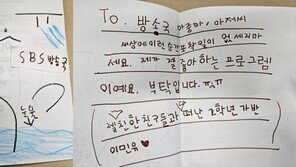 SBS방송국
눈물
To. 방송국 아줌마, 아저씨
세상에이런 순간포착일이 없세지마
세요. 제가 잴 좋아하는 프로그렘
이예요. 부탁입니다. ㅠㅠ
젤친한친구들과 떠난 2학년 가반
이민유♥